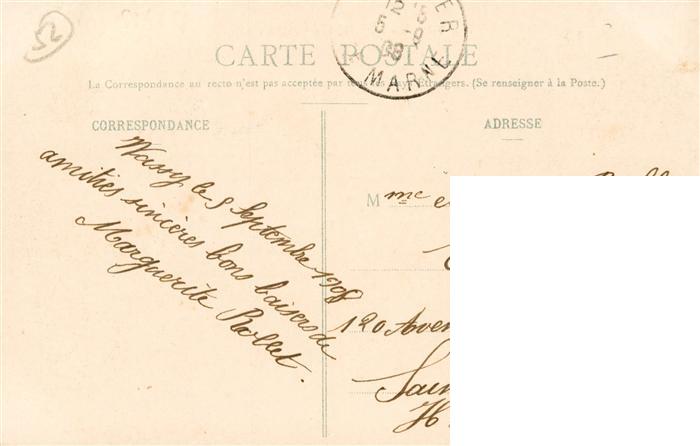 52
CARTE POSTALE
La Correspondance au recto n'est pas acceptée par tous les pays Étrangers. (Se renseigner à la Poste.)
CORRESPONDANCE
ADRESSE
MARNE
Wassy le 5 Septembre 1908
amitiés sincères bons baisers de
Marguerite Rollet.
Mme
120